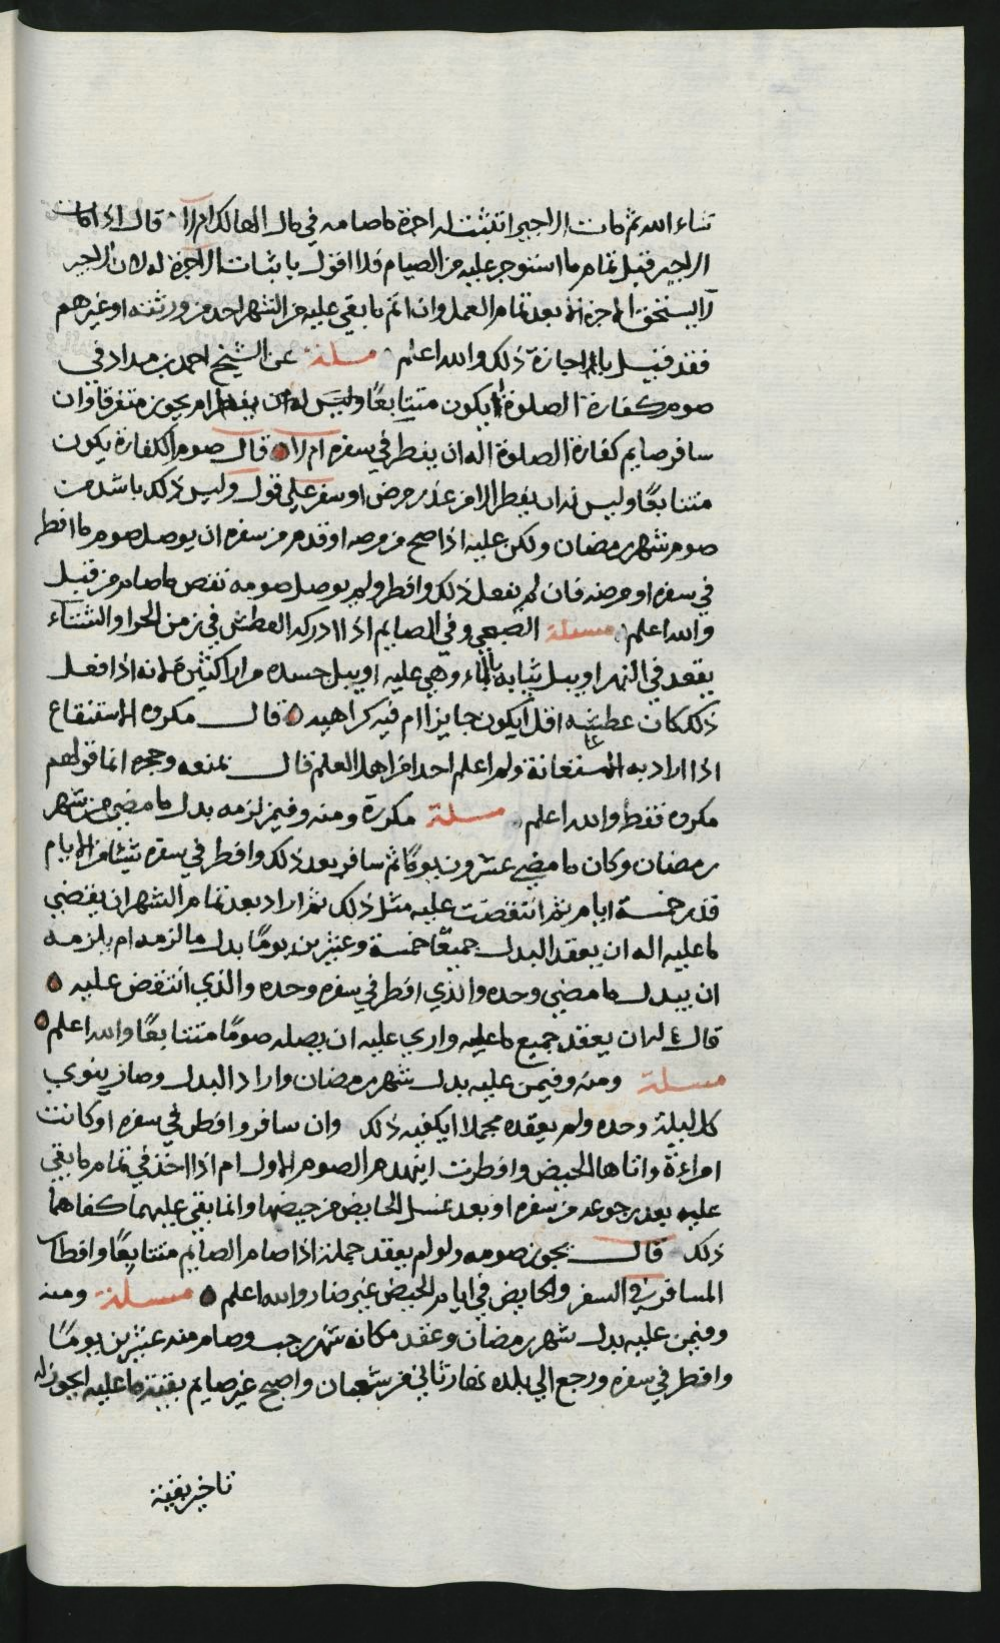 شاء الله ثم مات الاجير اتثبت له اجرة ما صامه في مال الهالك ام لا قال اذا مات
الاجير قبل تمام ما استوجر عليه من الصيام فلا اقول باثبات الاجرة له لان الاجير
لا يستحق الاجرة الا بعد تمام العمل وان اتم ما بقي عليه من الشهر احد من ورثته او غيرهم
فقد قيل باجازة ذلك والله اعلم مسلة عن الشيخ احمد بن مداد في
صوم كفارة الصلوة ايكون متتابعًا وليس له ان يفطر ام يجوز متفرقا وان
سافر صايم كفارة الصلوة اله ان يفطر في سفره ام لا قال صوم الكفارة يكون
متتابعًا وليس له ان يفطر الا من عذر مرض او سفر على قول وليس ذلك باشد من
صوم شهر رمضان ولكن عليه اذا صح من مرضه او قدم من سفره ان يوصل صوم ما افطر
في سفره او مرضه فان لم يفعل ذلك وافطر ولم يوصل صومه نقض ما صام من قبل
والله اعلم مسلة الصبحي وفي الصايم اذا ادركه العطش في زمن الحر او الشتاء
يقعد في النهر او يبل ثيابه بالماء وهي عليه او يبل جسده مرارا كثيرة فانه اذا فعل
ذلك كان عطشه اقل ايكون جايزا ام فيه كراهية قال مكروه الاستنقاع
اذا اراد به الاستغاثة ولم اعلم احدا من اهل العلم قال بمنعه وحجره انما قولهم
مكروه فقط والله اعلم مسلة مكررة ومنه وفيمن لزمه بدل ما مضى من شهر
رمضان وكان ما مضى عشرون يومًا ثم سافر بعد ذلك وافطر في سفره شيئا من الايام
قدر خمسة ايام ثم انتقضت عليه مثل ذلك ثم اراد بعد تمام الشهر ان يقضي
ما عليه اله ان يعقد البدل جميعًا خمسة وعشرين يومًا بدل ما لزمه ام يلزمه
ان يبدل ما مضى وحده والذي افطر في سفره وحده والذي انتقض عليه
قال له ان يعقد جميع ما عليه وارى عليه ان يصله صومًا متتابعًا والله اعلم
مسلة ومنه وفيمن عليه بدل شهر رمضان واراد البدل وصار ينوي
كل ليلة وحده ولم يعقده مجملا ايكفيه ذلك وان سافر وافطر في سفره او كانت
امراءة واتاها الحيض وافطرت اينهدم الصوم الاول ام اذا اخذ في تمام ما بقي
عليه بعد رجوعه من سفره او بعد غسل الحايض من حيضها واتما بقي عليهما كفاهما
ذلك قال يجوز صومه ولو لم يعقد جملة اذا صام الصايم متتابعًا وافطار
المسافر في السفر والحايض في ايام الحيض غير ضار والله اعلم مسلة ومنه
وفيمن عليه بدل شهر رمضان وعقد مكانه شهر رجب وصام منه عشرين يومًا
وافطر في سفره ورجع الى بلده نهار ثاني من شعبان واصبح غير صايم بقية ما عليه ايجوز له
تاخير بقية